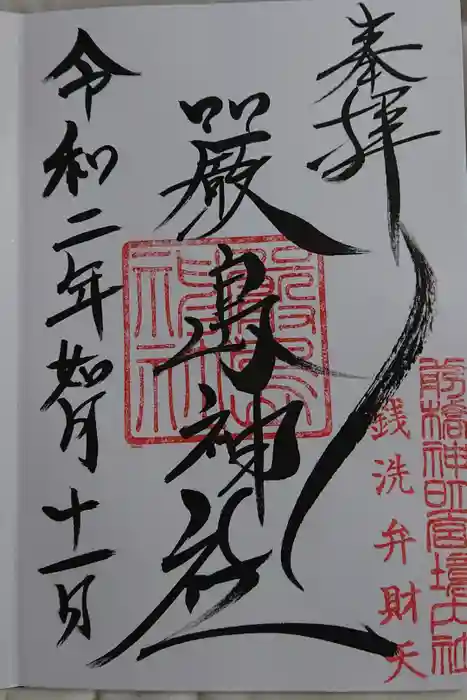 奉拝
前橋神明宮境内社
銭洗弁財天
厳島神社
令和二年如月十一日
厳島神社